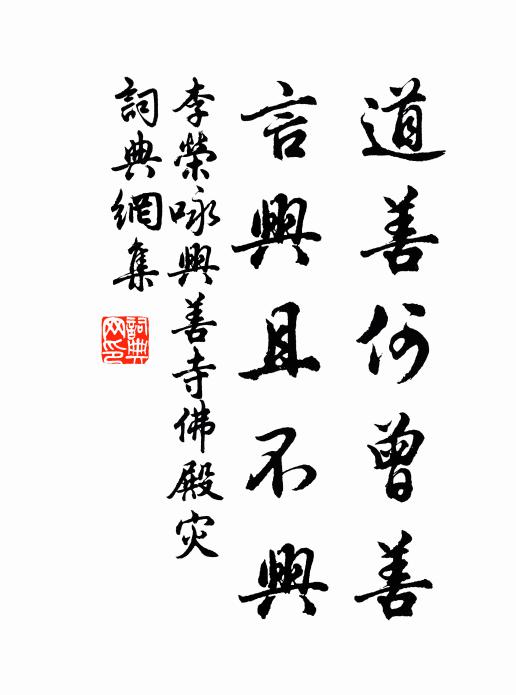 道善何曾善
言興且不興
李榮咏興善寺佛殿災
詞典網集
詞典网印